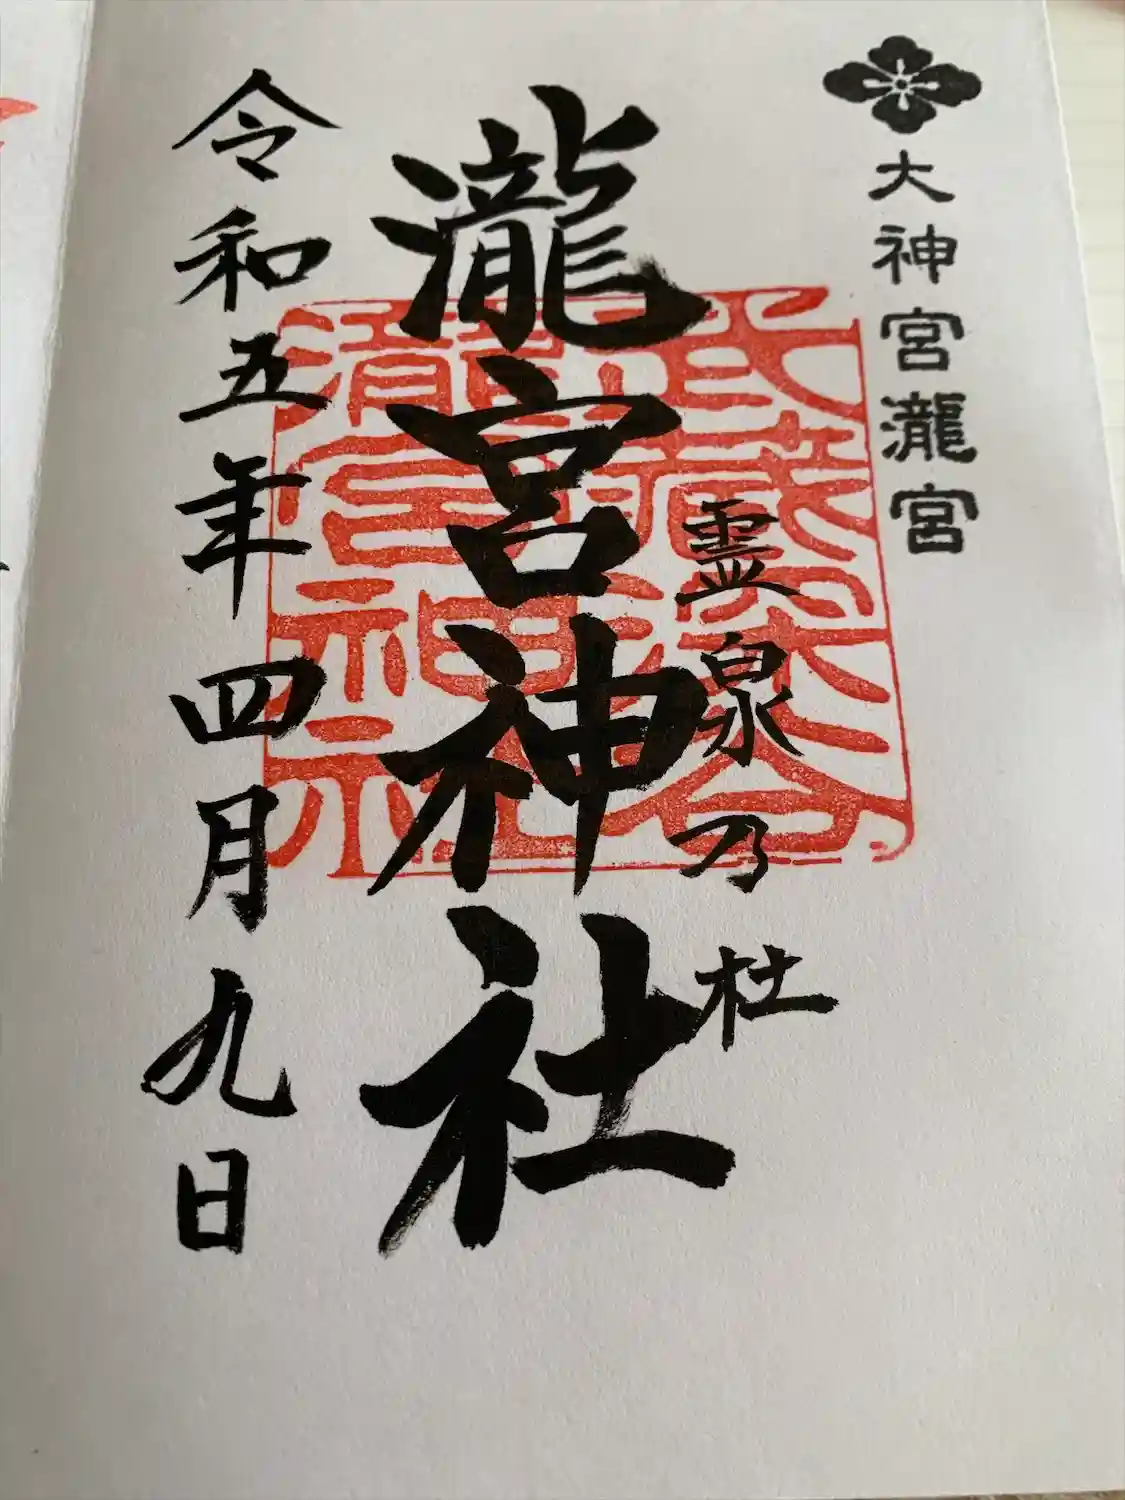 大神宮瀧宮
霊泉乃杜
瀧宮神社
武蔵深谷
瀧宮神社
令和五年四月九日